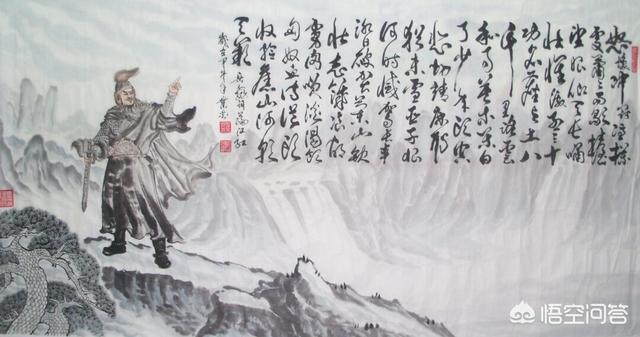 怒髮冲冠憑欄
處瀟瀟雨歇抬
望眼仰天長嘯
壯懷激烈三十
功名塵與土八
千里路雲
和月莫等闲白
了少年頭空
悲切靖康恥
猶未雪臣子恨
何時滅駕長車
踏破賀蘭山缺
壯志飢餐胡
虜肉笑談渴飲
匈奴血待從頭
收拾舊山河朝
天闕 岳飛詞滿江紅
歲在甲午年
悟空问答